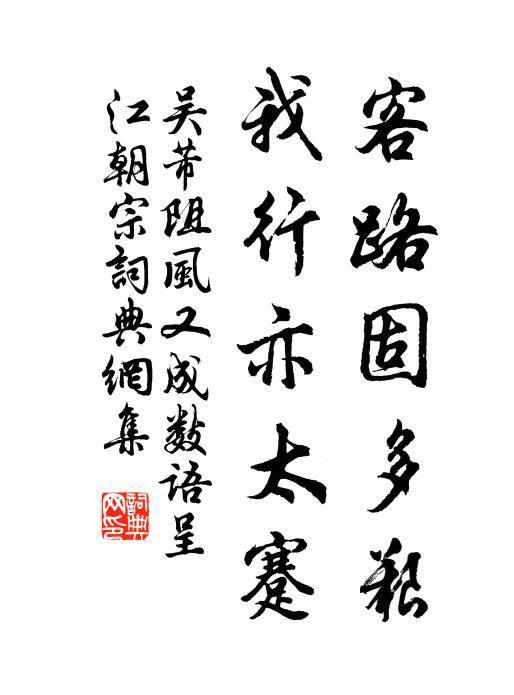 客路固多艱
我行亦太蹇
吴芾阻風又成數语呈
江朝宗詞典網集
詞典網印